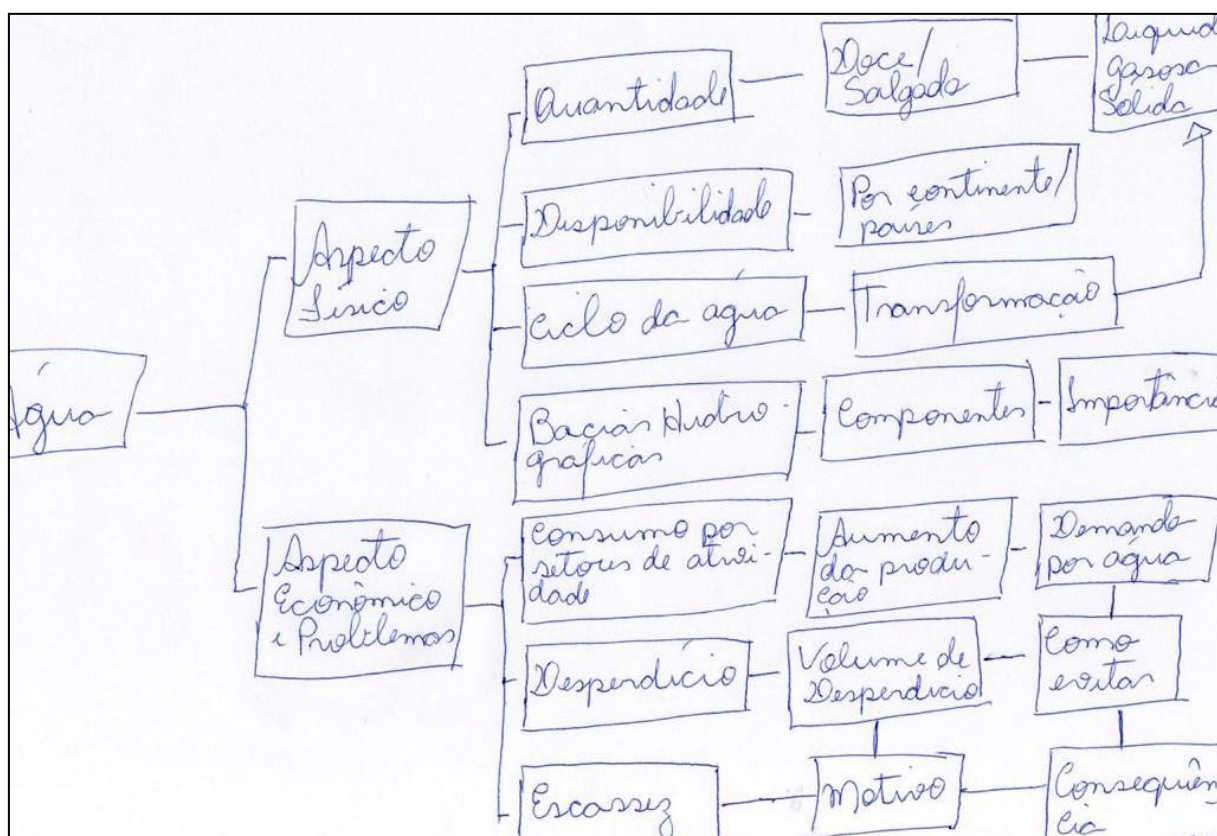 Água
Aspecto
Físico
Quantidade
Doce/
Salgada
Líquid
gasosa
Sólida
Disponibilidade
Por continente/
países
Ciclo da água
Transformação
Bacias Hidro-
gráficas
Componentes
Importância
Aspecto
Econômico
e Problemas
Consumo por
setores de ativi-
dade
Aumento
da produ-
ção
Demanda
por água
Desperdício
Volume de
Desperdício
Como
evitar
Escassez
Motivo
Consequên
cia